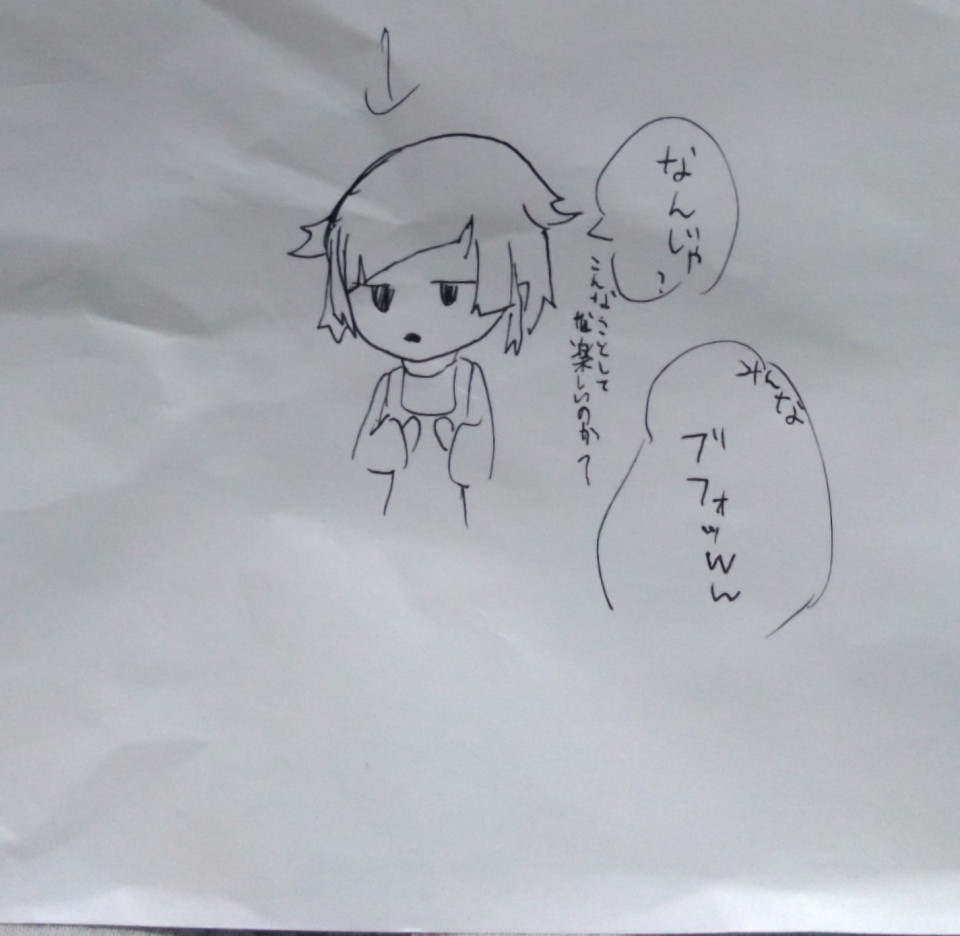 なんじゃ?
こんなことして
な楽しいのかて
みんな
ブフォッww